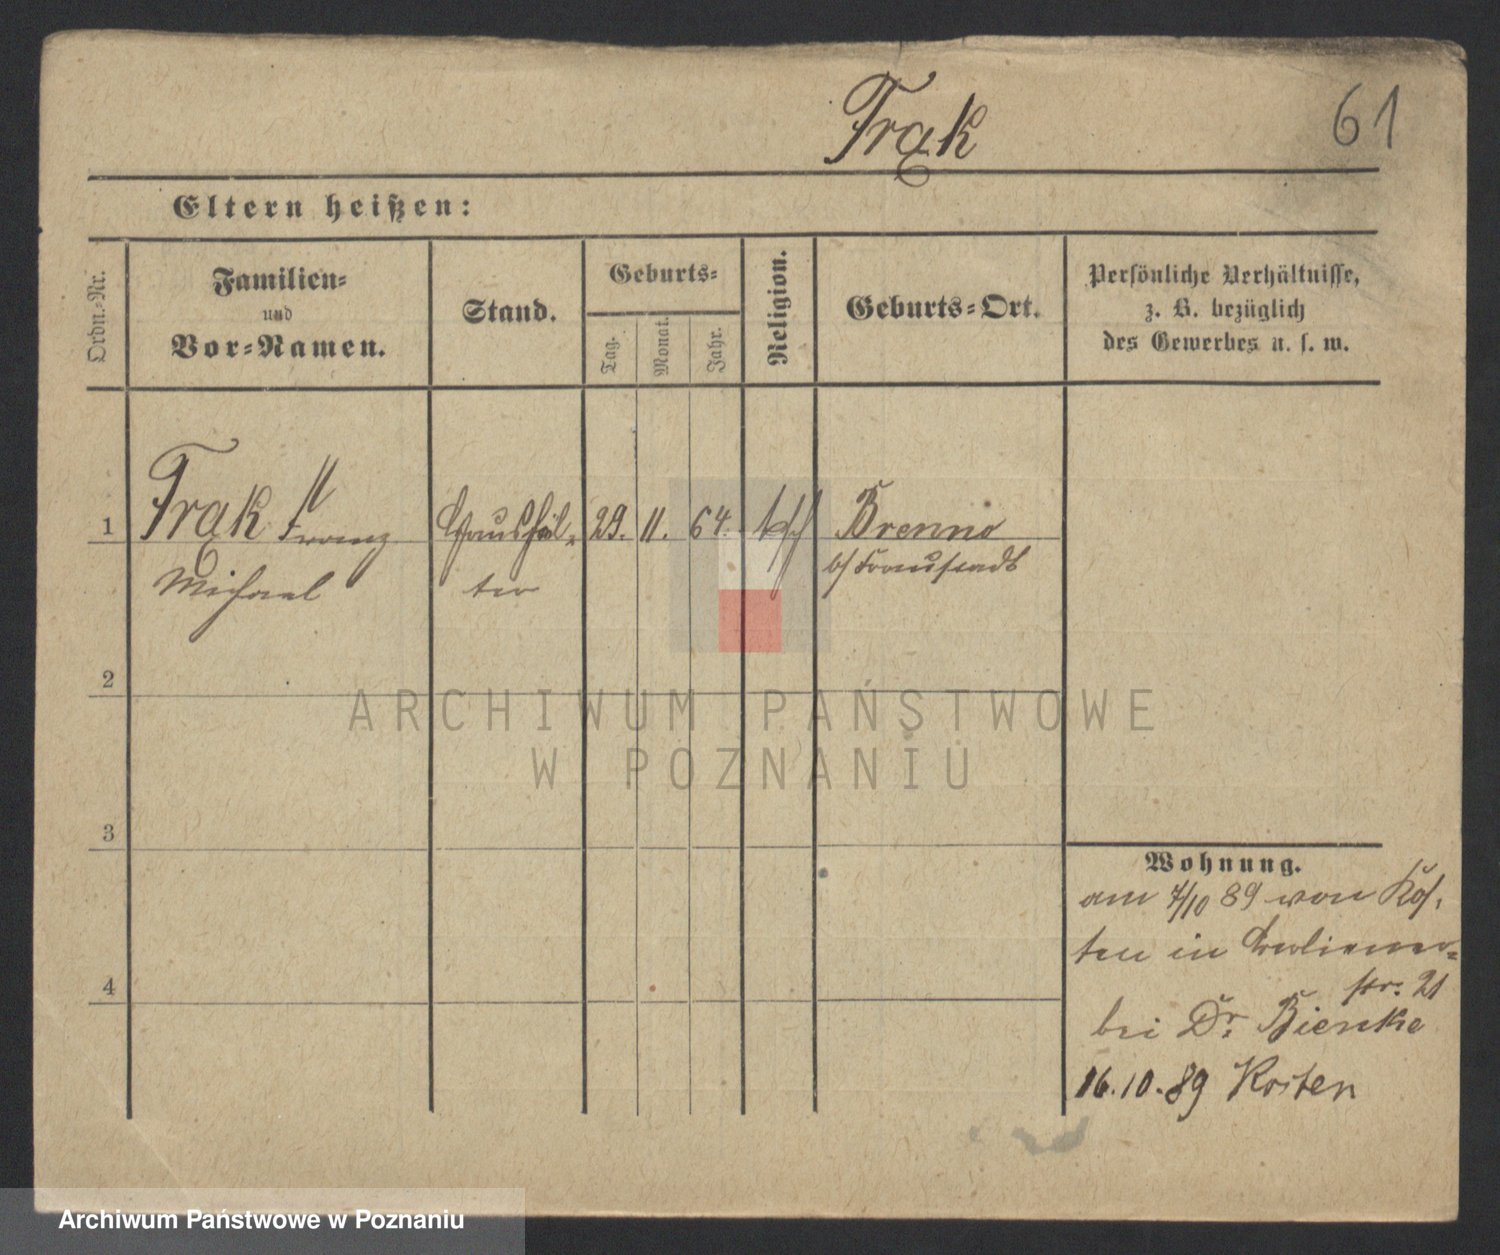 Frak
61
Eltern heißen:
Ordn.-Nr.
Familien-
und
Vor-Namen.
Stand.
Geburts-
Tag.
Monat.
Jahr.
Religion.
Geburts-Ort.
Persönliche Verhältnisse,
z. B. bezüglich
des Gewerbes u. s. w.
1
Frak Franz
Michael
Haushäl-
ter
29. 11. 64.
kth
Brenno
b/ Fraustadt
2
3
4
Wohnung.
am 7/10 89 von Kos-
ten in Berliner-
str. 21
bei Dr. Bienke
16.10.89 Kosten
ARCHIWUM PAŃSTWOWE
W POZNANIU
Archiwum Państwowe w Poznaniu